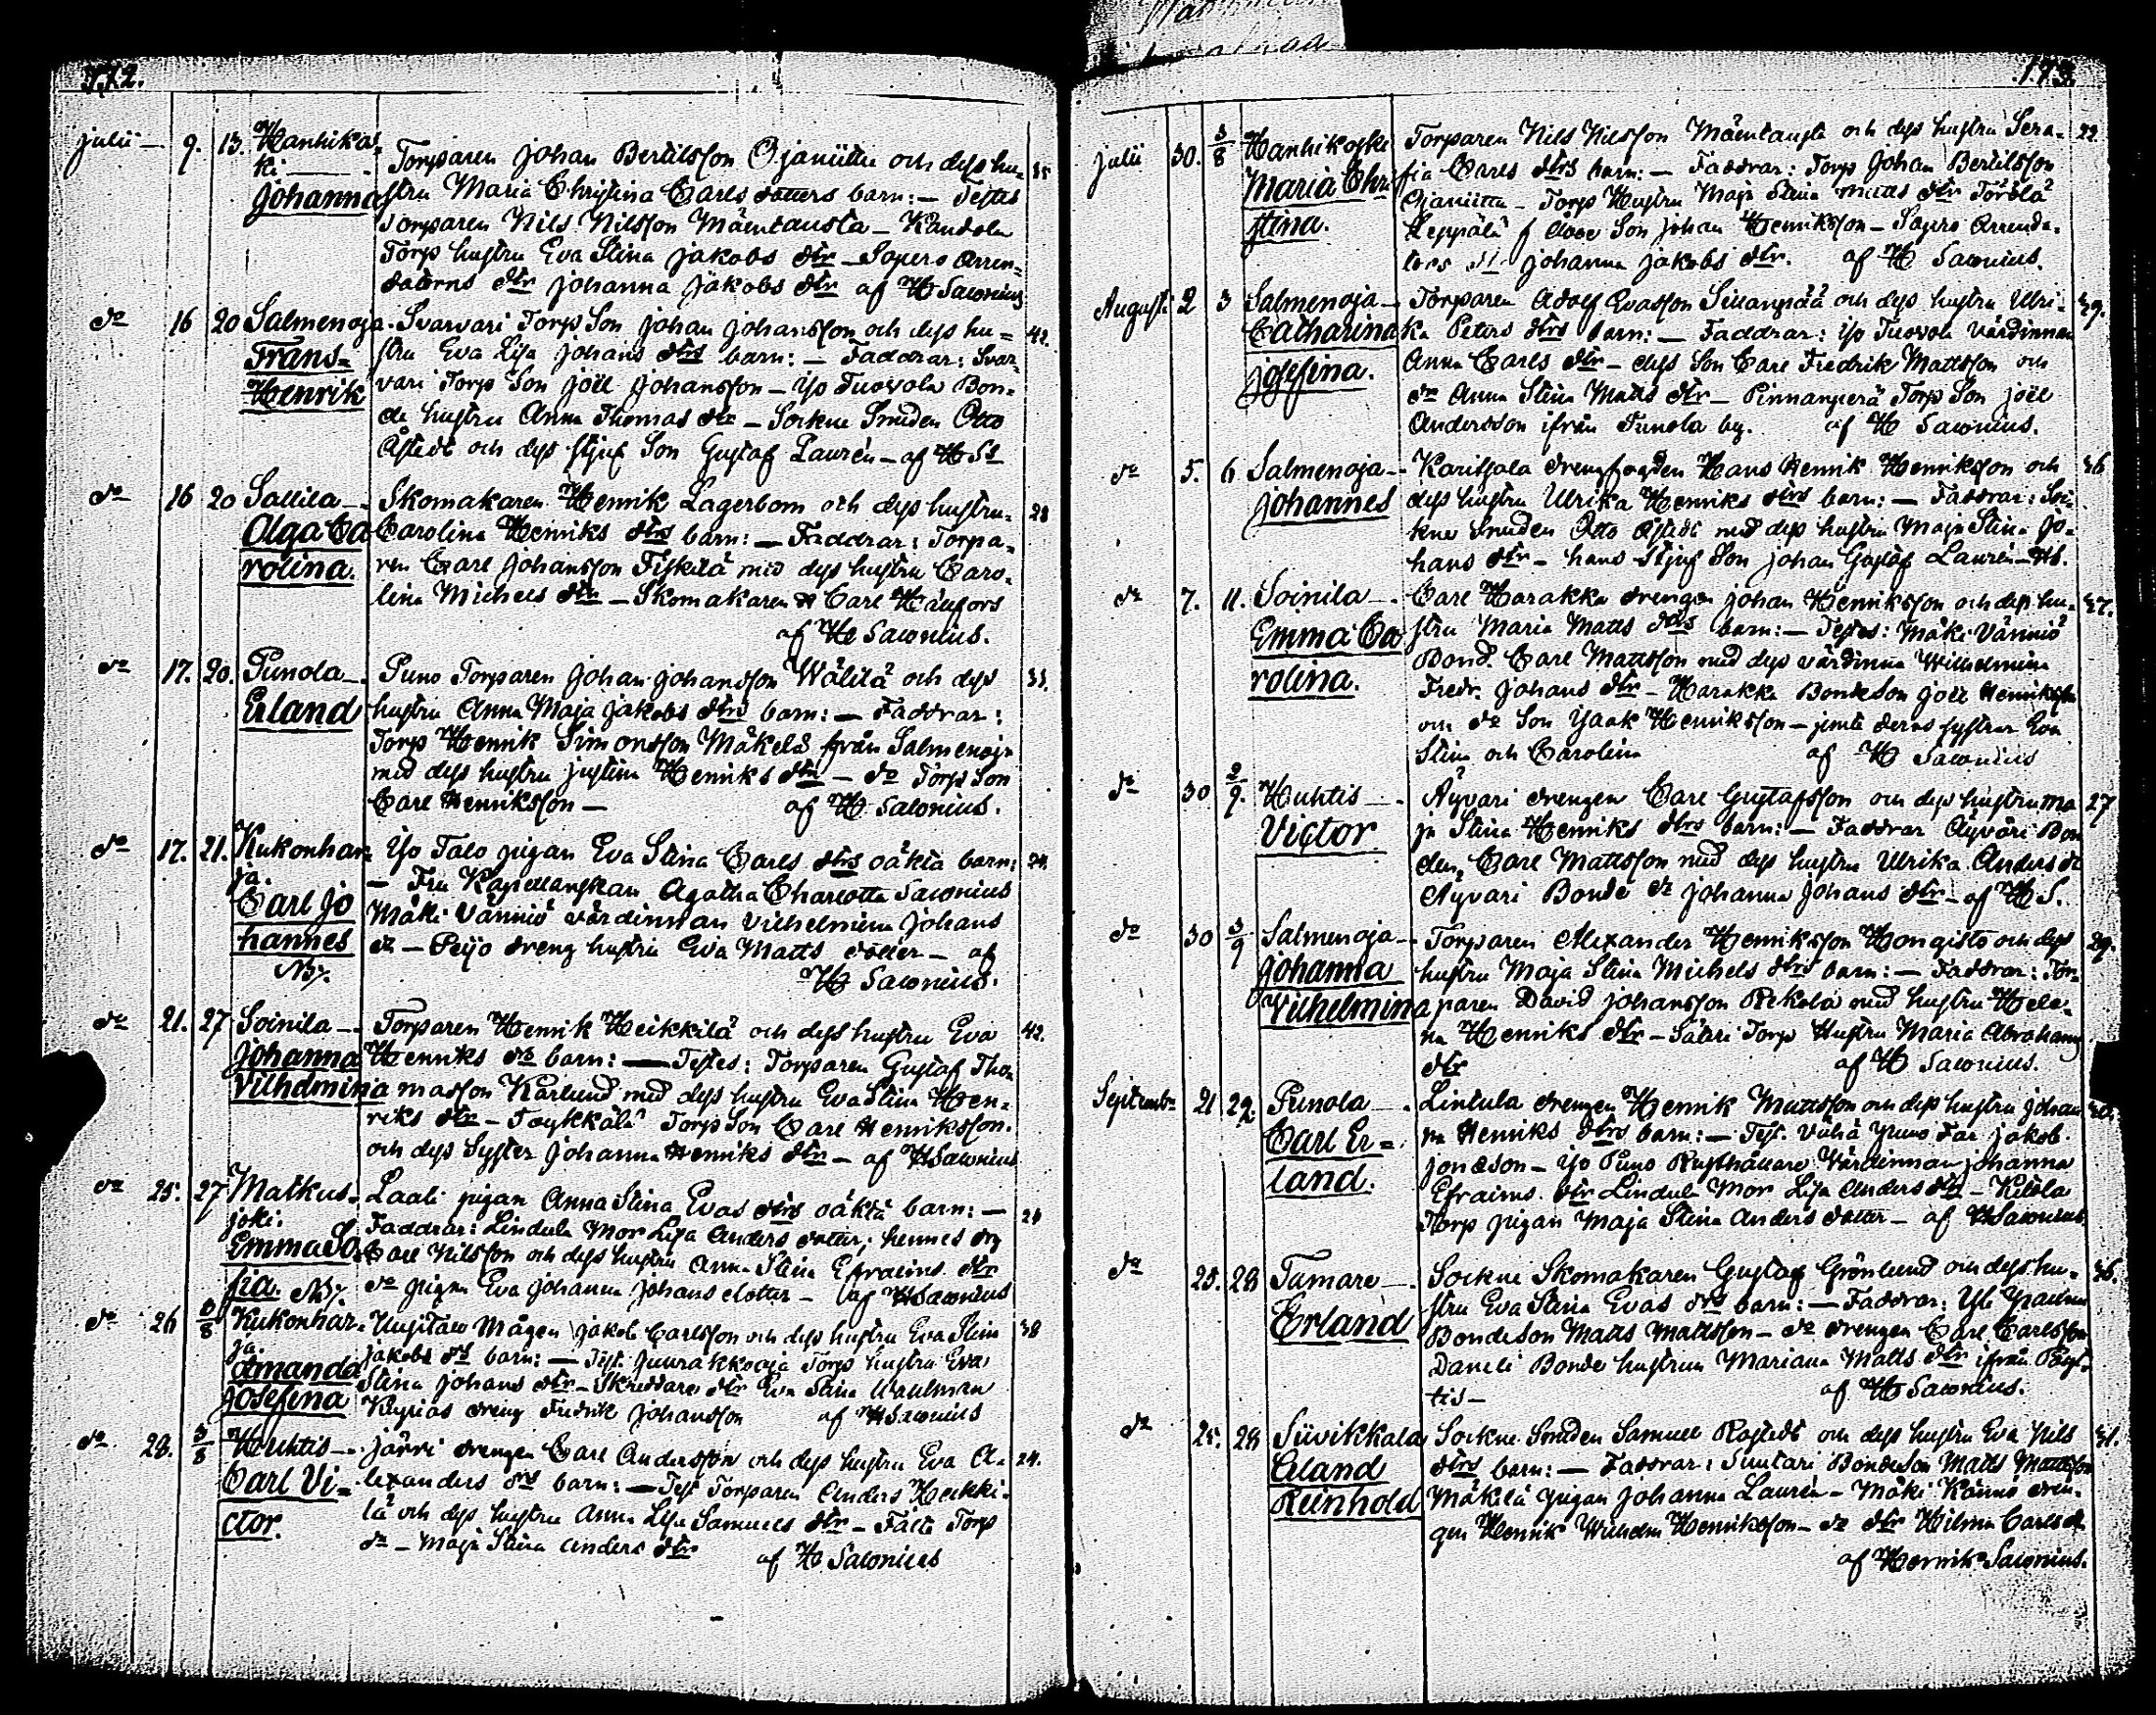 172.
julii — 9. 13. Hanhikos-
ki — Torparen Johan Bertilsson Ojaniittu och dess hu- 35
Johanna stru Maria Christina Carls dotters barn: — Testes
Torparen Nils Nilsson Mäentausta — Kandola
Torp hustru Eva Stina Jakobs dtr — Sopero Arren-
datorns dtr Johanna Jakobs dtr af H Salonius
do 16 20 Salmenoja - Svarvari Torp Son Johan Johansson och dess hu= 42.
Frans= stru Eva Lisa Johans dtrs barn: — Faddrar: Svar
Henrik vari Torp Son Joel Johansson — Yso Tuovola Bon-
de hustru Anna Thomas dtr — Sockne Smeden Otto
Åstedt och dess stjuf Son Gustaf Laurén — af H Ss
do 16 20 Sallila — Skomakaren Henrik Lagerbom och dess hustru 28
Olga Ca Carolina Henriks dtrs barn: — Faddrar: Torpa-
rolina. ren Carl Johansson Fiskilä med dess hustru Caro-
lina Michels dtr — Skomakaren Carl Hänfors
af H Salonius.
do 17. 20. Punola — Puno Torparen Johan Johansson Wälilä och dess 33.
Erland hustru Anna Maja Jakobs dtrs barn: — Faddrar:
Torp Henrik Simonsson Mäkelä från Salmenoja
med dess hustru Justina Henriks dtr — do Torp Son
Carl Henriksson — af H Salonius.
do 17. 21. Kukonhar- Yso Talo pigan Eva Stina Carls dtrs oäkta barn: 24.
ja. — Fru Kapellanskan Agatha Charlotta Salonius
Carl Jo Mäki Vänniö värdinnan Vilhelmina Johans
hannes dr — Peijo dreng hustru Eva Matts dotter — af
NB. H Salonius.
do 21. 27 Soinila — Torparen Henrik Heikkilä och dess hustru Eva 42.
Johanna Henriks drs barn: — Testes: Torparen Gustaf Tho-
Vilhelmina masson Karlund med dess hustru Eva Stina Hen-
riks dtr — Töykkälä Torp Son Carl Henriksson
och dess Syster Johanna Henriks dtr — af H Salonius
do 25. 27 Matkus- Laali pigan Anna Stina Evas dtrs oäkta barn: — 24
joki. Faddrar: Lindula Mor Lisa Anders dotter; hennes drg
Emma So Carl Nilsson och dess hustru Anna Stina Efraims dtr
fia. NB. do pigan Eva Johanna Johans dotter — af H Salonius
do 26 3/8 Kukonhar- Uusitalo Mågen Jakob Carlsson och dess hustru Eva Stina 38
ja. Jakobs drs barn: — Test. Juurakkooja Torp hustru Eva
Amanda Stina Johans dtr — Skreddare dtr Eva Stina Wahlman
Josefina Kyrias dreng Fredrik Johansson af H Salonius
do 28. 3/8 Huhtis — Järvi drengen Carl Andersson och dess hustru Eva A- 24.
Carl Vi- lexanders drs barn: — Test Torparen Anders Heikki-
ctor. lä och dess hustru Anna Lisa Samuels dtr — Fälti Torp
dr — Maja Stina Anders dtr af H. Salonius
173.
julii 30. 3/8 Hanhikoski Torparen Nils Nilsson Mäentausta och dess hustru Sera- 22.
Maria Chri fia Carls dtrs barn: — Faddrar: Torp Johan Bertilsson
stina. Ojaniittu — Torp Hustru Maja Stina Matts dtr Törölä
Leppälä f Son Johan Henriksson — Sopero Arrenda-
tors Johanna Jakobs dtr. af H Salonius.
Augusti 2 3 Salmenoja — Torparen Adolf Evasson Sillanpää och dess hustru Ulri- 29.
Catharina ka Peters dtrs barn: — Faddrar: Yso Tuovola värdinnan
Josefina. Anna Carls dtr — dess Son Carl Fredrik Mattsson och
do Anna Stina Matts dtr — Pinnanperä Torp Son Joel
Andersson ifrån Punola by. af H Salonius.
do 5. 6 Salmenoja — Karitsala drengfogden Hans Henrik Henriksson och 36
Johannes dess hustru Ulrika Henriks dtrs barn: — Faddrar: Soc-
kne Smeden Otto Åstedt med dess hustru Maja Stina Jo-
hans dtr — hans Stjuf Son Johan Gustaf Laurén — HS.
do 7. 11. Soinila — Carl Harakka drengen Johan Henriksson och dess hu- 27.
Emma Ca stru Maria Matts drs barn: — Testes: Mäki Vänniö
rolina. Bond. Carl Mattsson med dess värdinna Wilhelmina
Fredr. Johans dtr — Harakka Bondeson Joel Henriksson
och do Son Isaak Henriksson — jemte deras systrar Eva
Stina och Carolina af H Salonius
do 30 2/9. Huhtis — Äyvari drengen Carl Gustafsson och dess hustru Ma 27
Victor ja Stina Henriks dtrs barn: — Faddrar Äyväri Bon
den Carl Mattsson med dess hustru Ulrika Anders dr
Äyvari Bonde dr Johanna Johans dtr — af H S.
do 30 3/9 Salmenoja — Torparen Alexander Henriksson Hongisto och dess 29.
Johanna hustru Maja Stina Michels dtrs barn: — Faddrar: Tor-
Vilhelmina paren David Johansson Rekola med hustru Hele-
na Henriks dtr — Säteri Torp Hustru Maria Abrahams
dtr af H Salonius.
Septembr 21 22. Punola — Lintula drengen Henrik Mattsson och dess hustru Johan
Carl Er= na Henriks dtrs barn: — Test. Vähä Puno Far Jakob
land. Jonæson — Yso Puno Rusthållare Värdinnan Johanna
Efraims dtr Lindula Mor Lisa Anders dtr — Kitola
Torp pigan Maja Stina Anders dotter — af H Salonius
do 25. 28 Tamare — Sockne Skomakaren Gustaf Grönlund och dess hu- 36.
Erland stru Eva Stina Evas drs barn: — Faddrar: Yli
Bondeson Matts Mattsson — do drengen Carl Carlsson
Daneli Bonde hustrun Mariana Matts dtr ifrån
tis — af H Salonius.
do 25. 28 Siivikkala Sockne Smeden Samuel Rostedt och dess hustru Eva Nils 31.
Erland dtrs barn: — Faddrar: Suutari Bondeson Matts Mattsson
Reinhold Mäkilä pigan Johanna Laurén — Mäki Kännö dren-
gen Henrik Wilhelm Henriksson — do dtr Hilma Carls dr
af Henrik Salonius.